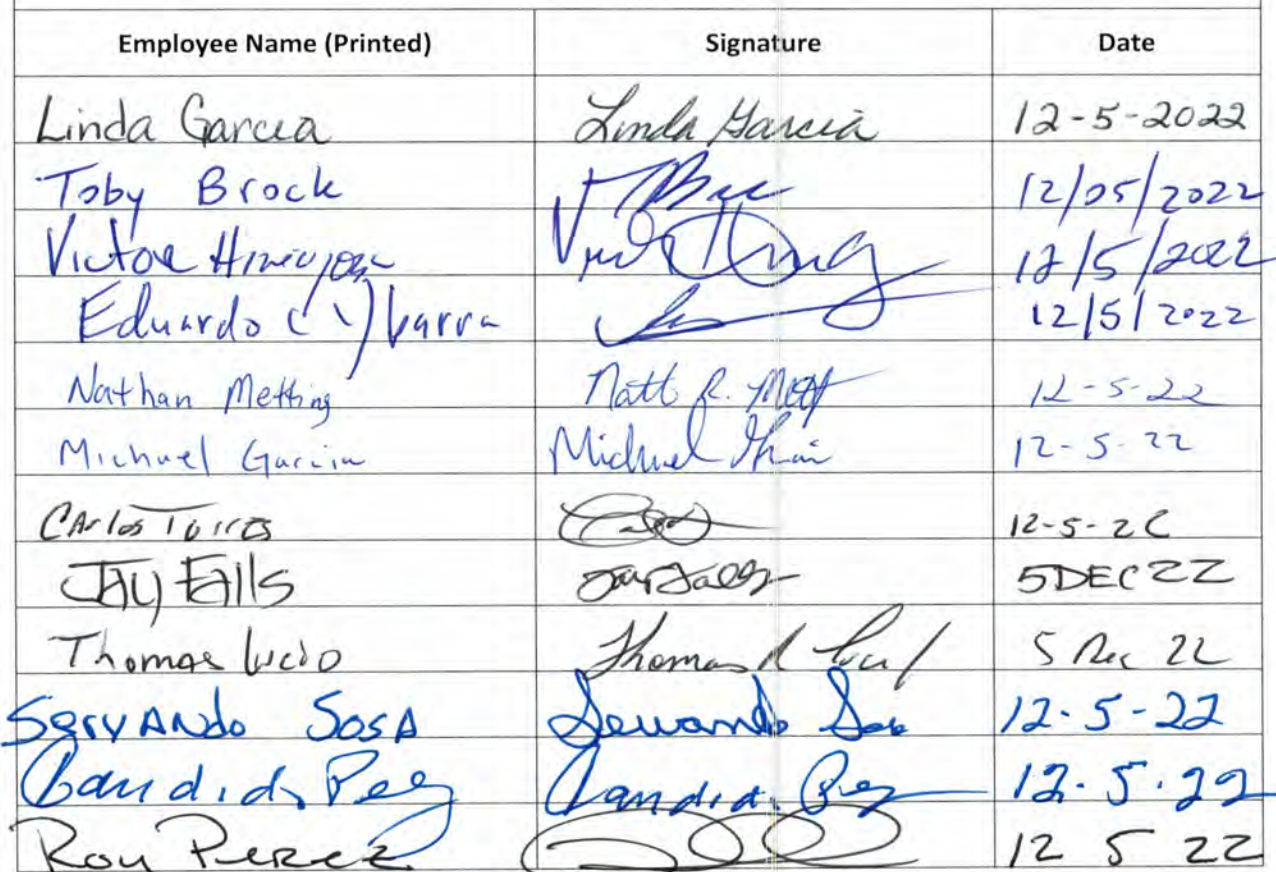 Employee Name (Printed) Signature Date
Linda Garcia Linda Garcia 12-5-2022
Toby Brock 12/05/2022
Victor Hinojosa 12/5/2022
Eduardo Ybarra 12/5/2022
Nathan Metting Natt R. Mett 12-5-22
Michael Garcia Michael 12-5-22
Carlos Torres 12-5-22
Jay Falls Jay Falls 5DEC22
Thomas Lucio Thomas 5 Dec 22
Servando Sosa Servando Sosa 12-5-22
Candido Candido 12.5.22
Roy Perez 12 5 22